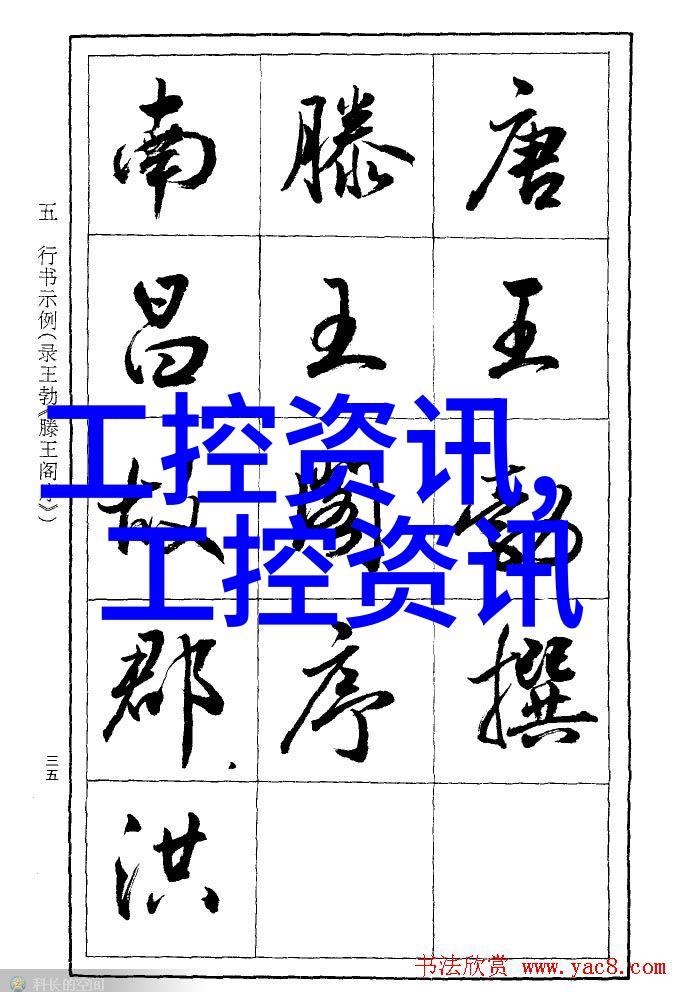 唐王勃撰
滕王阁序
南昌故郡洪
五 行书示例(录王勃《滕王阁序》)
三五
工控资讯,
工控资讯
书法欣赏 www.yac8.com
科长的空间